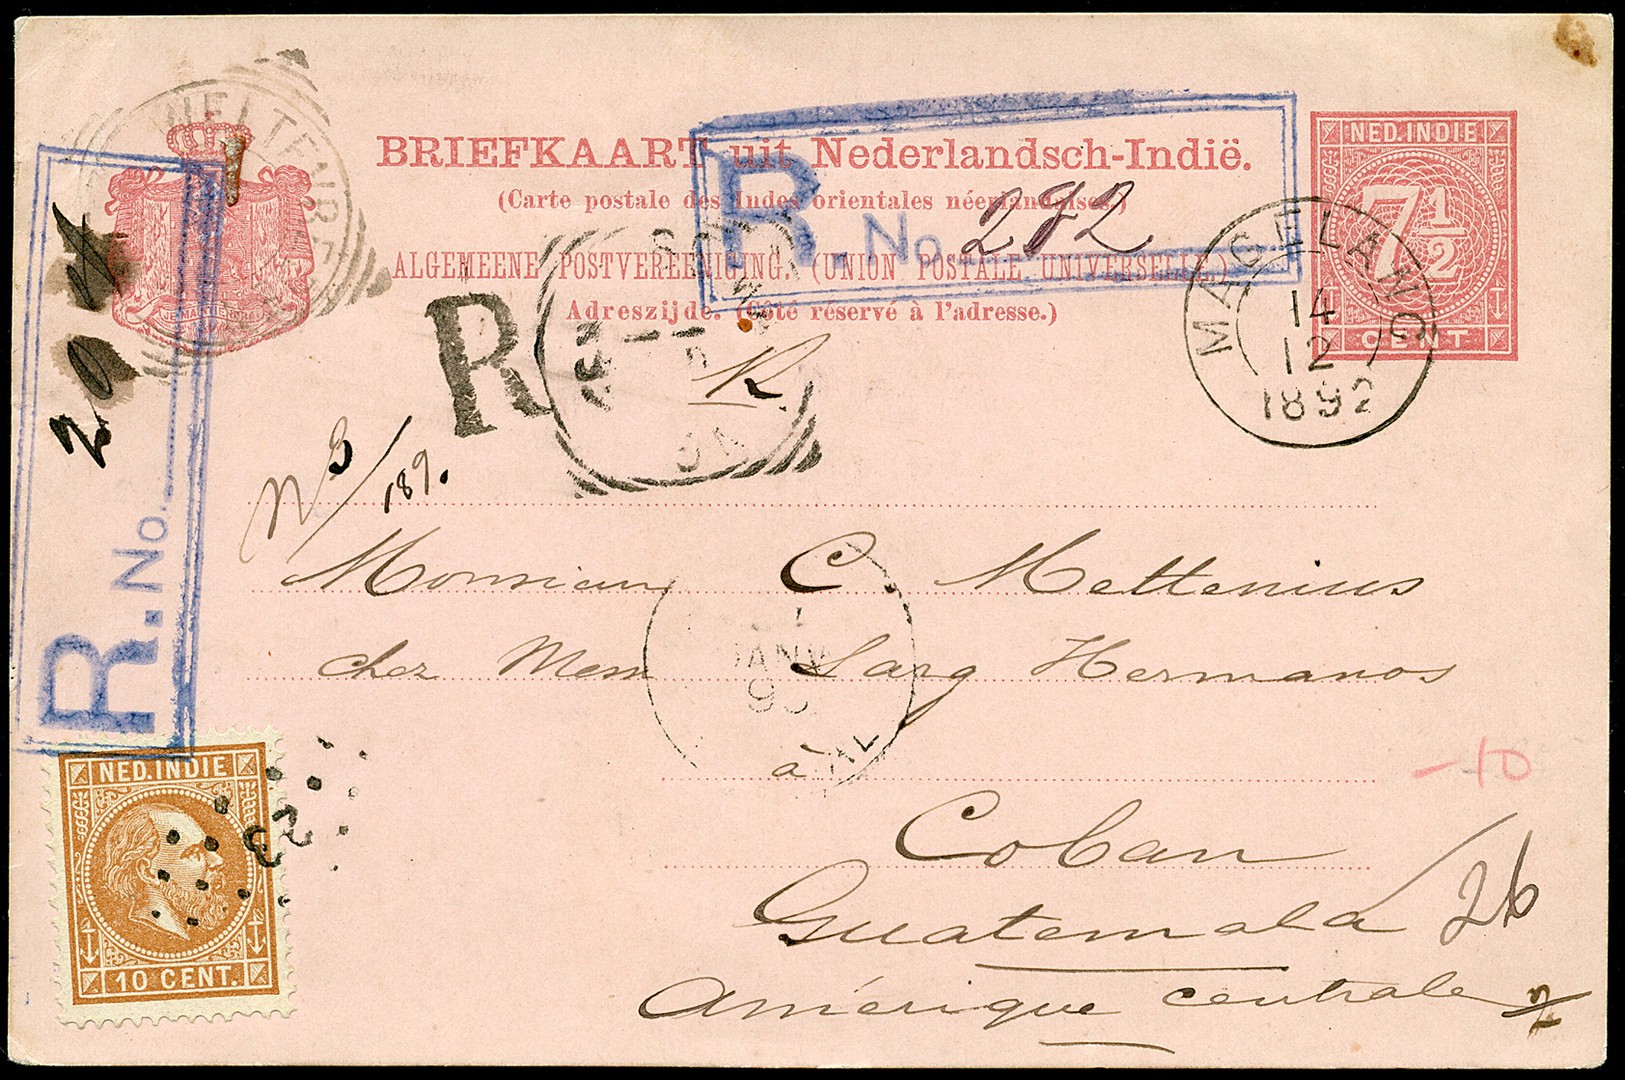 BRIEFKAART uit Nederlandsch-Indië.
(Carte postale des Indes orientales néerlandaises.)
ALGEMEENE POSTVEREENIGING. (UNION POSTALE UNIVERSELLE.)
Adreszijde. (Côté réservé à l'adresse.)
NED. INDIE
7 1/2
CENT
MAGELANG
14
12
1892
R. No. 282
R
R
R. No.
JE MAINTIENDRAI
No 3/189.
Monsieur C Mettenius
chez Mess Sarg Hermanos
à
Coban
Guatemala
Amérique centrale
26
-10
JANV
NED. INDIE
10 CENT.
23